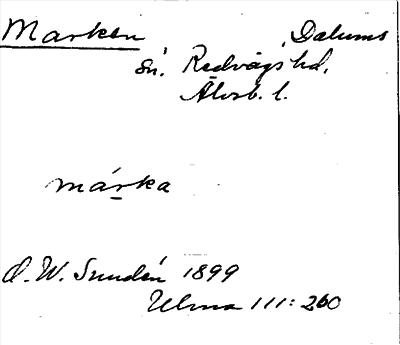 Marken Dalums
sn. Redvägs hd,
Älvsb. l.
márka
D. W. Sundén 1899
Ulma 111: 260